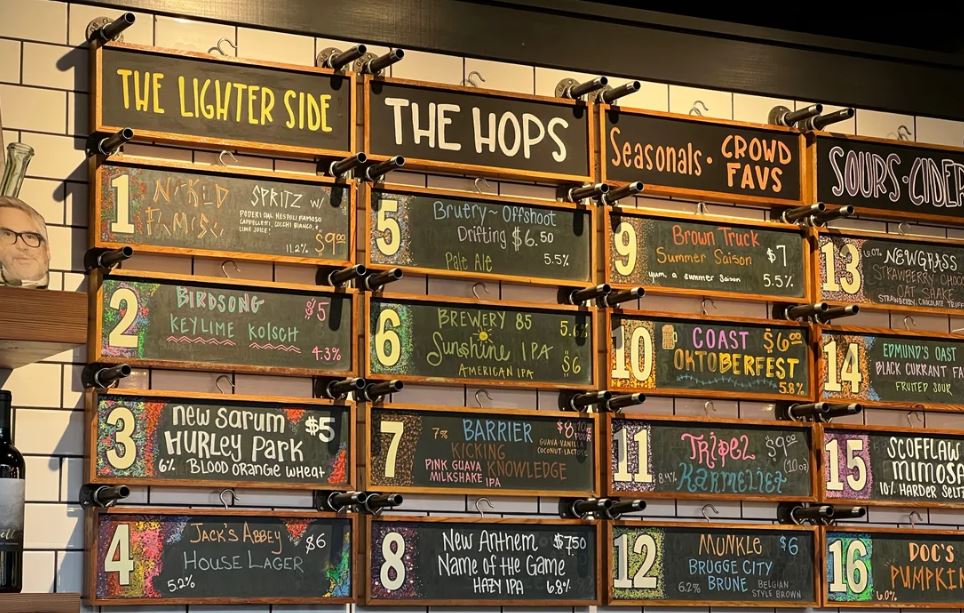 THE LIGHTER SIDE
1 NAKED FAMOUS SPRITZ W/
CAPPELLETTI, COCCHI BIANCO,
LIME JUICE!
11.2% $9.00
2 BIRDSONG $5
KEY LIME KOLSCH
4.3%
3 New Sarum $5
HURLEY PARK
6% BLOOD ORANGE WHEAT
4 JACK'S ABBEY $6
HOUSE LAGER
5.2%
THE HOPS
5 Bruery~Offshoot
Drifting $6.50
Pale Ale 5.5%
6 BREWERY 85
Sunshine IPA $6
AMERICAN IPA
7 7% BARRIER
KICKING
PINK GUAVA KNOWLEDGE
MILKSHAKE IPA
GUAVA-VANILLA
COCONUT-LACTOSE
8 New Anthem $7.50
Name of the Game
HAZY IPA 6.8%
Seasonals · CROWD
FAVS
9 Brown Truck $7
Summer Saison
yum, a summer Saison 5.5%
10 COAST $6.00
OKTOBERFEST
5.8%
11 Tripel $9.00
Karmeliet
8.4% (10oz)
12 MUNKLE $6
BRUGGE CITY
BRUNE
6.2% BELGIAN
STYLE BROWN
SOURS·CIDER
13 6.0% NEWGRASS
STRAWBERRY CHOCO
OAT SHAKE
STRAWBERRY, CHOCOLATE, TRUFF
14 EDMUND'S OAST
BLACK CURRANT FA
FRUITED SOUR
15 SCOFFLAW
MIMOSA
10% HARDER SELTZ
16 DOC'S
PUMPKIN
6.0%